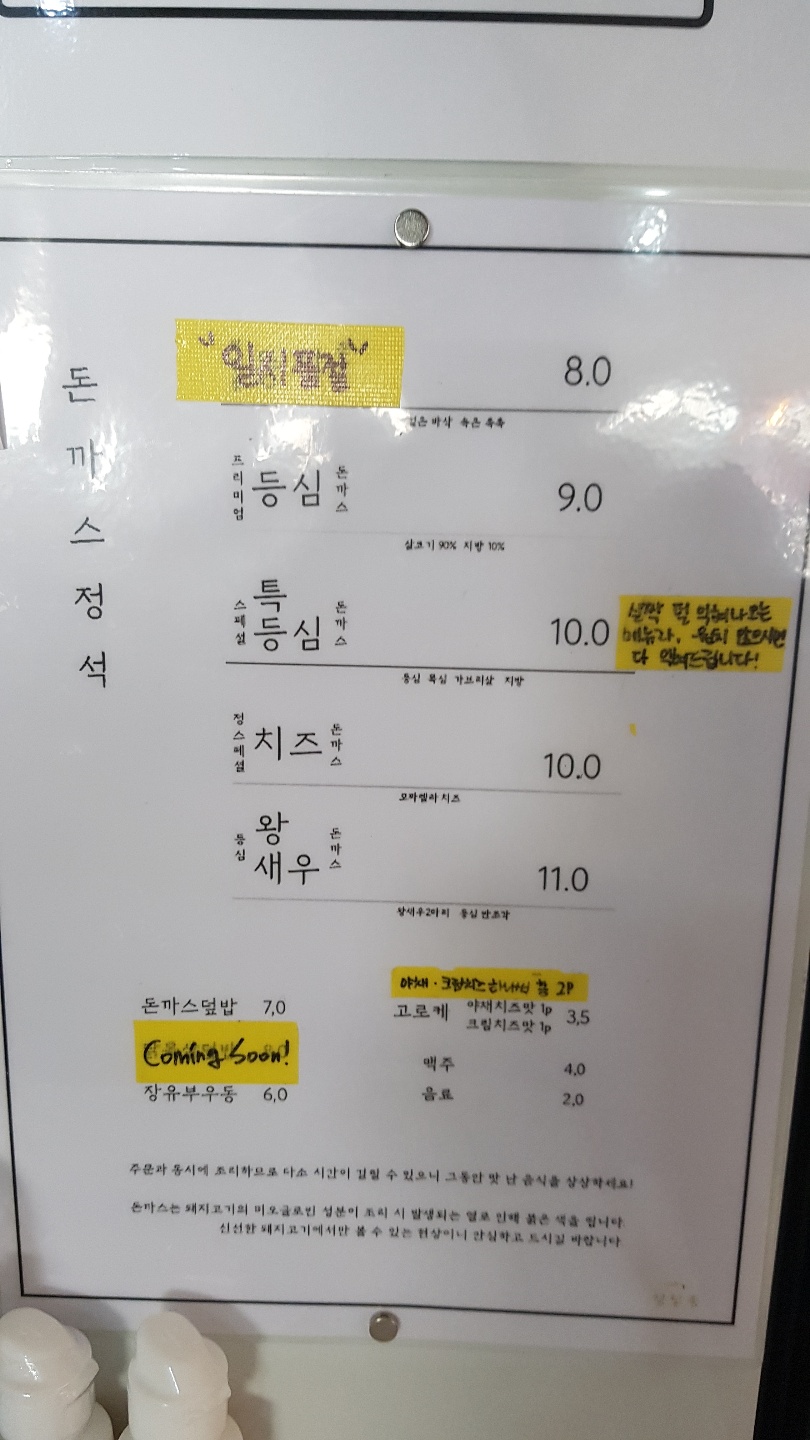 돈까스정석
"일시품절" 8.0
겉은 바삭 속은 촉촉
프리미엄 등심 돈까스 9.0
살코기 90% 지방 10%
스페셜 특등심 돈까스 10.0
살짝 덜 익혀나오는
메뉴라, 원치 않으시면
다 익혀드립니다!
등심 목심 가브리살 지방
정스페셜 치즈 돈까스 10.0
모짜렐라 치즈
등심 왕새우 돈까스 11.0
왕새우2마리 등심 반조각
돈까스덮밥 7,0
Coming Soon!
장유부우동 6,0
야채·크림치즈 2P
고로케 야채치즈맛 1p 3,5
크림치즈맛 1p
맥주 4,0
음료 2,0
주문과 동시에 조리하므로 다소 시간이 걸릴 수 있으니 그동안 맛 난 음식을 상상하세요!
돈까스는 돼지고기의 미오글로빈 성분이 조리 시 발생되는 열로 인해 붉은 색을 띕니다
신선한 돼지고기에서만 볼 수 있는 현상이니 안심하고 드시길 바랍니다